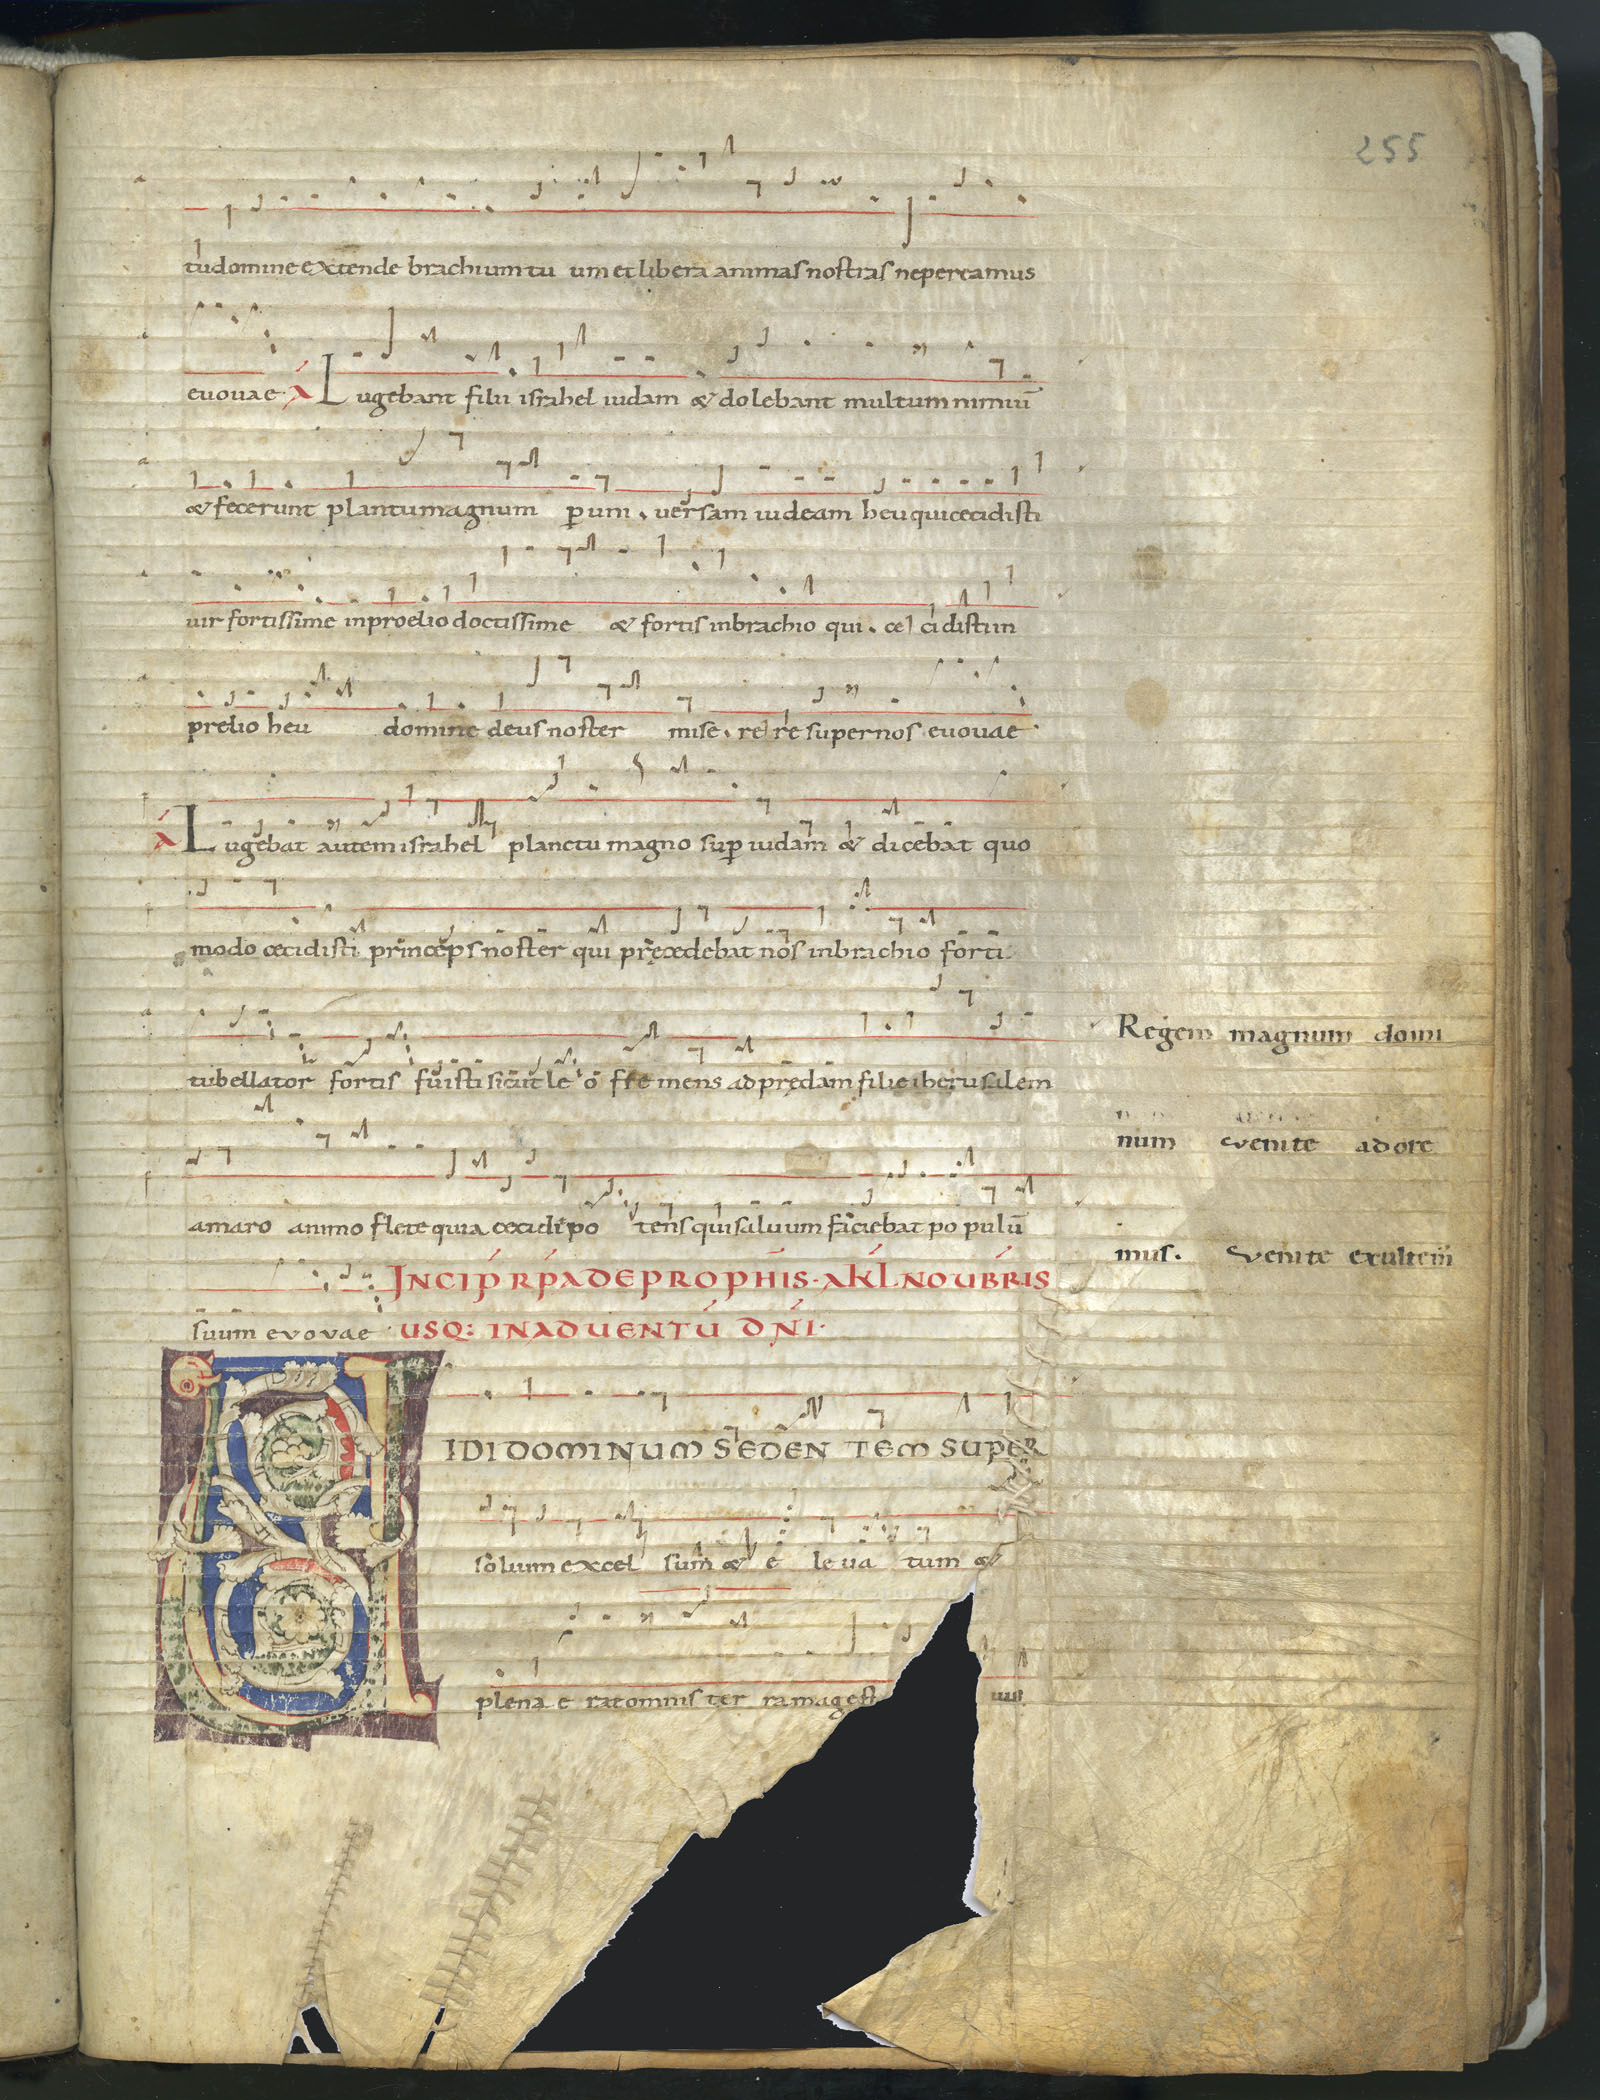 255
tu domine extende brachium tu um et libera animas nostras ne pereamus
euouae A Lugebant filii israhel iudam & dolebant multum nimiū
& fecerunt planctu magnum p um . uersam iudeam heu qui cecidisti
uir fortissime in proelio doctissime & fortis in brachio qui . ce ci disti in
prelio heu domine deus noster mise . re re super nos euouae
A Lugebat autem israhel planctu magno sup iudam & dicebat quo
modo cecidisti princeps noster qui pręcedebat nos in brachio forti.
tu bellator fortis fuisti sicut le o fremens ad prędam filie iherusalem
amaro animo flete quia cecidi po tens qui saluum faciebat po pulū
INCIP RPA DE PROPHIS . A KL NOUBRIS
suum evovae USQ: IN ADUENTŪ DNI.
IDI DOMINUM SEDEN TEM SUPER
solium excel sum & e le ua tum &
plena e rat omnis ter ra magest uus
Regem magnum domi
num venite adore
mus. Venite exultem